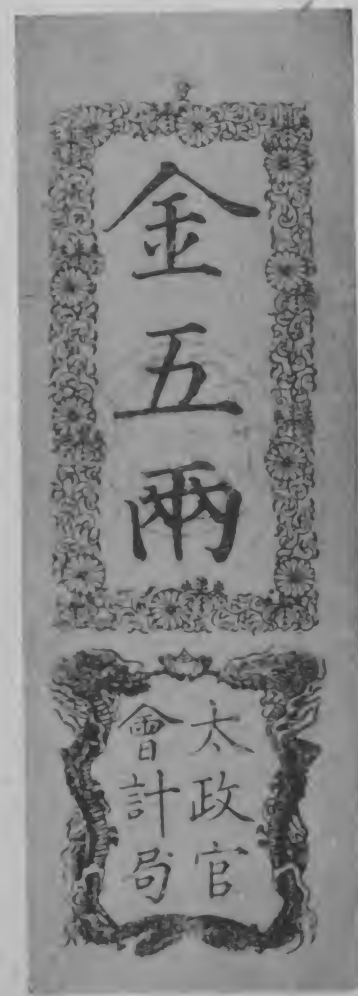 金五兩
太政官
會計局